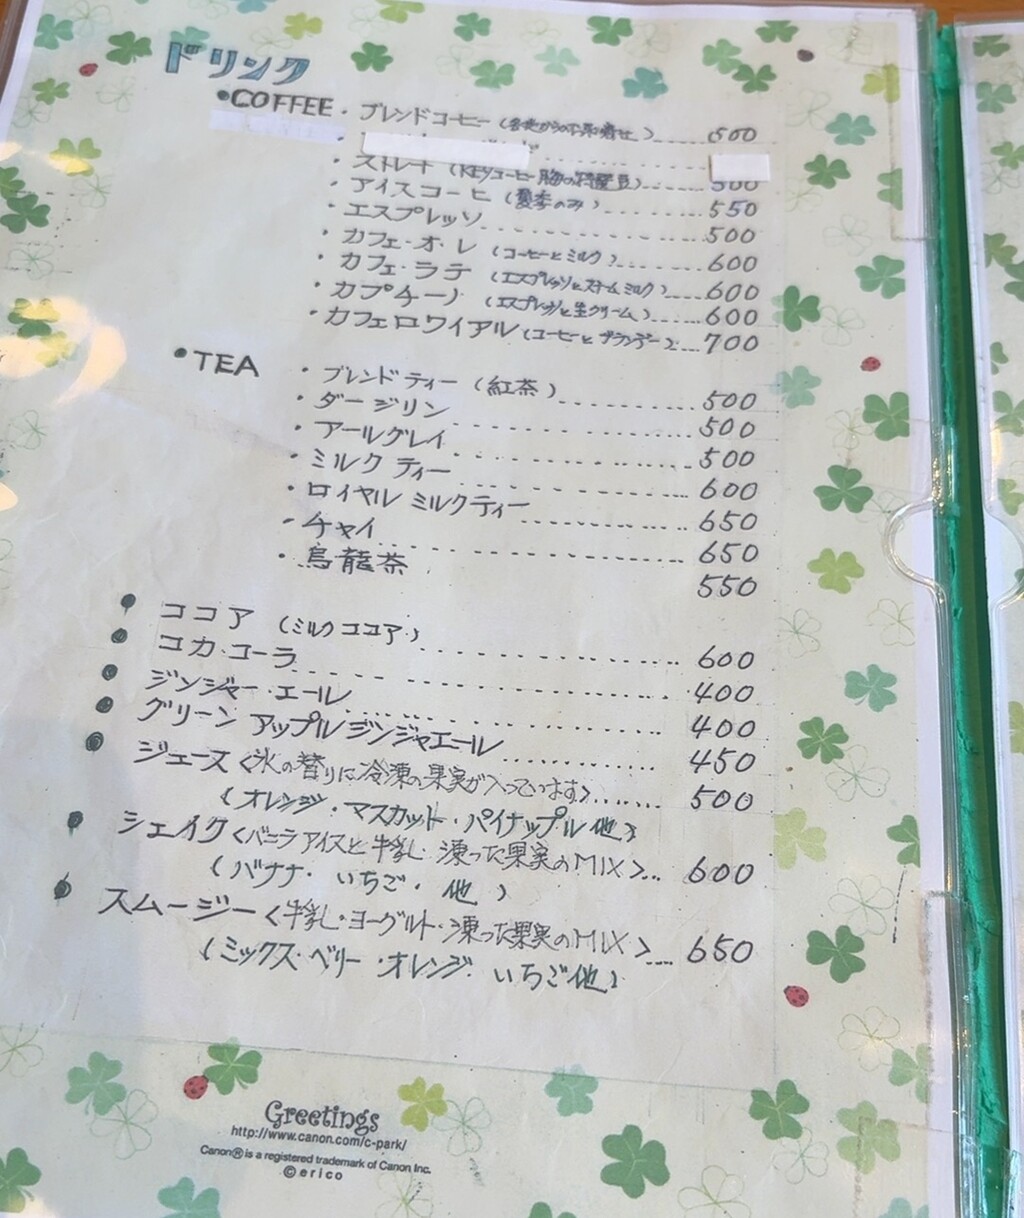 ドリンク
• COFFEE ・ブレンドコーヒー ( ) 500
・ストレート (KEYコーヒー ) 500
・アイスコーヒ (夏季のみ) 550
・エスプレッソ 500
・カフェ・オ・レ (コーヒーとミルク) 600
・カフェ・ラテ (エスプレッソとスチームミルク) 600
・カプチーノ (エスプレッソと生クリーム) 600
・カフェロワイアル (コーヒーとブランデー) 700
• TEA ・ブレンドティー (紅茶) 500
・ダージリン 500
・アールグレイ 500
・ミルクティー 600
・ロイヤルミルクティー 650
・チャイ 650
・烏龍茶 550
• ココア (ミルクココア) 600
• コカ・コーラ 400
• ジンジャー・エール 400
• グリーンアップルジンジャエール 450
• ジュース <氷の替りに冷凍の果実が入っています> 500
(オレンジ・マスカット・パイナップル他)
• シェイク <バニラアイスと牛乳・凍った果実のMIX> 600
(バナナ・いちご・他)
• スムージー <牛乳・ヨーグルト・凍った果実のMIX> 650
(ミックス・ベリー・オレンジ・いちご他)
Greetings
http://www.canon.com/c-park/
Canon® is a registered trademark of Canon Inc.
© erico